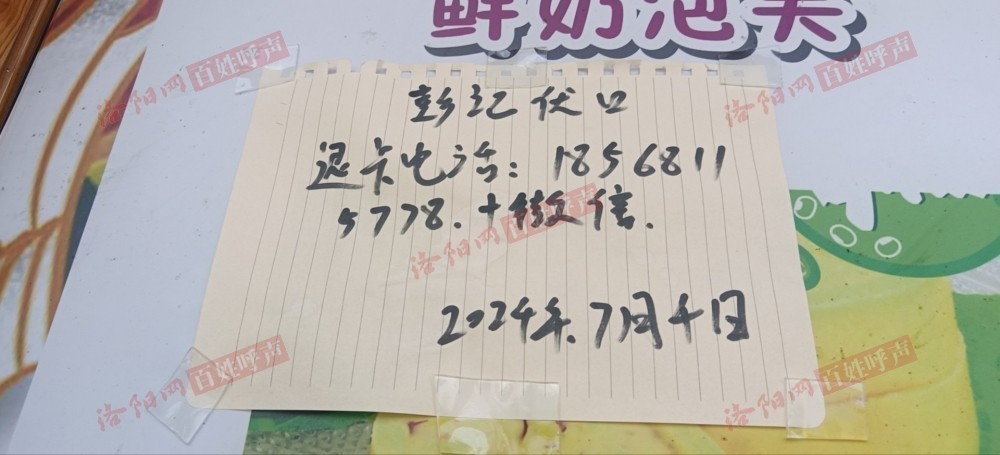 鲜奶泡芙
彭记伏口
退卡电话：1856811
5778.十微信.
2024年.7月4日
洛阳网 百姓呼声
洛阳网 百姓呼声
洛阳网 百姓呼声
洛阳网 百姓呼声
洛阳网 百姓呼声